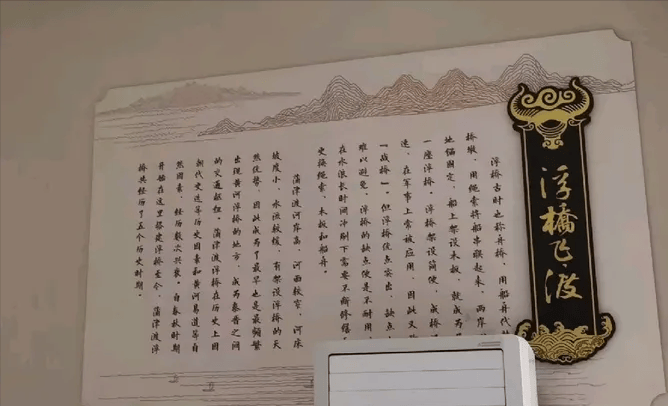 浮桥飞渡
浮桥古时也称舟桥,用船舟代
桥墩,用绳索将船串联起来,两岸
地锚固定,船上架设木板,就成为
一座浮桥。浮桥架设简便,成桥
速,在军事上常被应用,因此又
“战桥”,但浮桥优点突出,缺点
难以避免,浮桥的缺点便是不耐用,
在水浪长时间冲刷下需要不断修缮
更换绳索、木板和船舟。
蒲津渡河岸高,河面较窄,河床
坡度小,水流较缓,有架设浮桥的天
然优势,因此成为了最早也是最频繁
出现黄河浮桥的地方,成为秦晋之间
的交通献桓。蒲津渡浮桥在历史上因
朝代更迭等历史因素和黄河易道等自
然因素,经历数次兴衰。自春秋时期
开始在这里搭建浮桥至今,蒲津渡浮
桥共经历了五个历史时期。